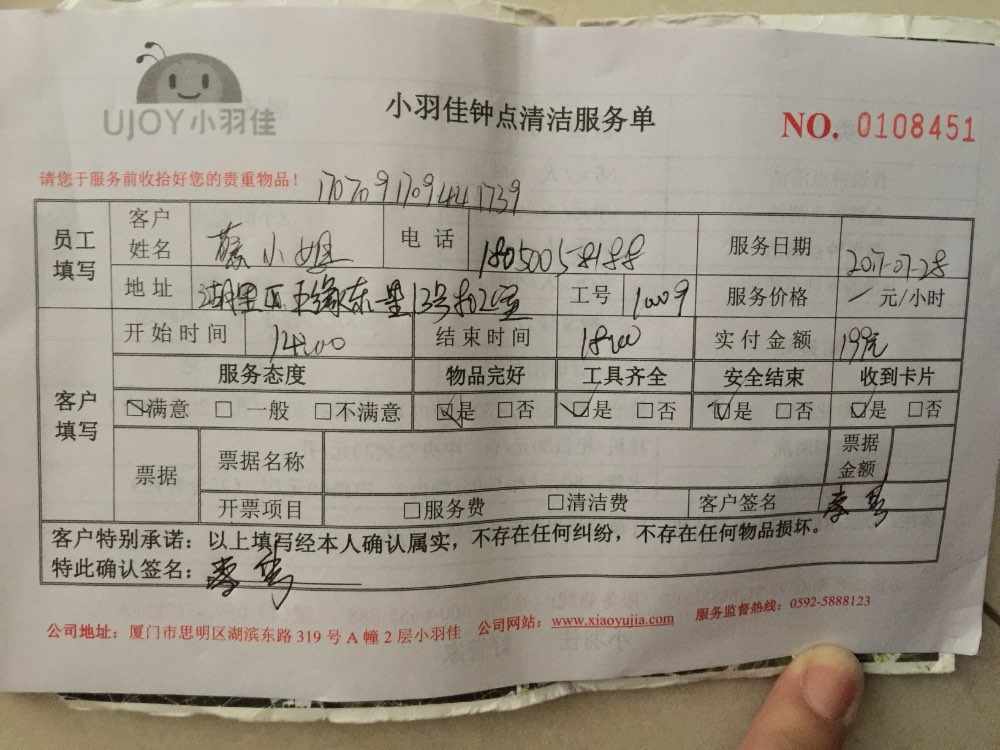 UJOY小羽佳
小羽佳钟点清洁服务单
NO. 0108451
请您于服务前收拾好您的贵重物品！
1707091709441739
员工填写 客户姓名 小姐 电话 18050058188 服务日期 2017-07-28
地址 湖里区 13号 工号 10009 服务价格 / 元/小时
客户填写 开始时间 14:00 结束时间 18:00 实付金额 199元
服务态度 物品完好 工具齐全 安全结束 收到卡片
☑满意 □ 一般 □不满意 ☑是 □否 ☑是 □否 ☑是 □否 ☑是 □否
票据 票据名称 票据金额
开票项目 □服务费 □清洁费 客户签名
客户特别承诺：以上填写经本人确认属实，不存在任何纠纷，不存在任何物品损坏。
特此确认签名：
公司地址：厦门市思明区湖滨东路 319 号 A 幢 2 层小羽佳 公司网站：www.xiaoyujia.com 服务监督热线：0592-5888123